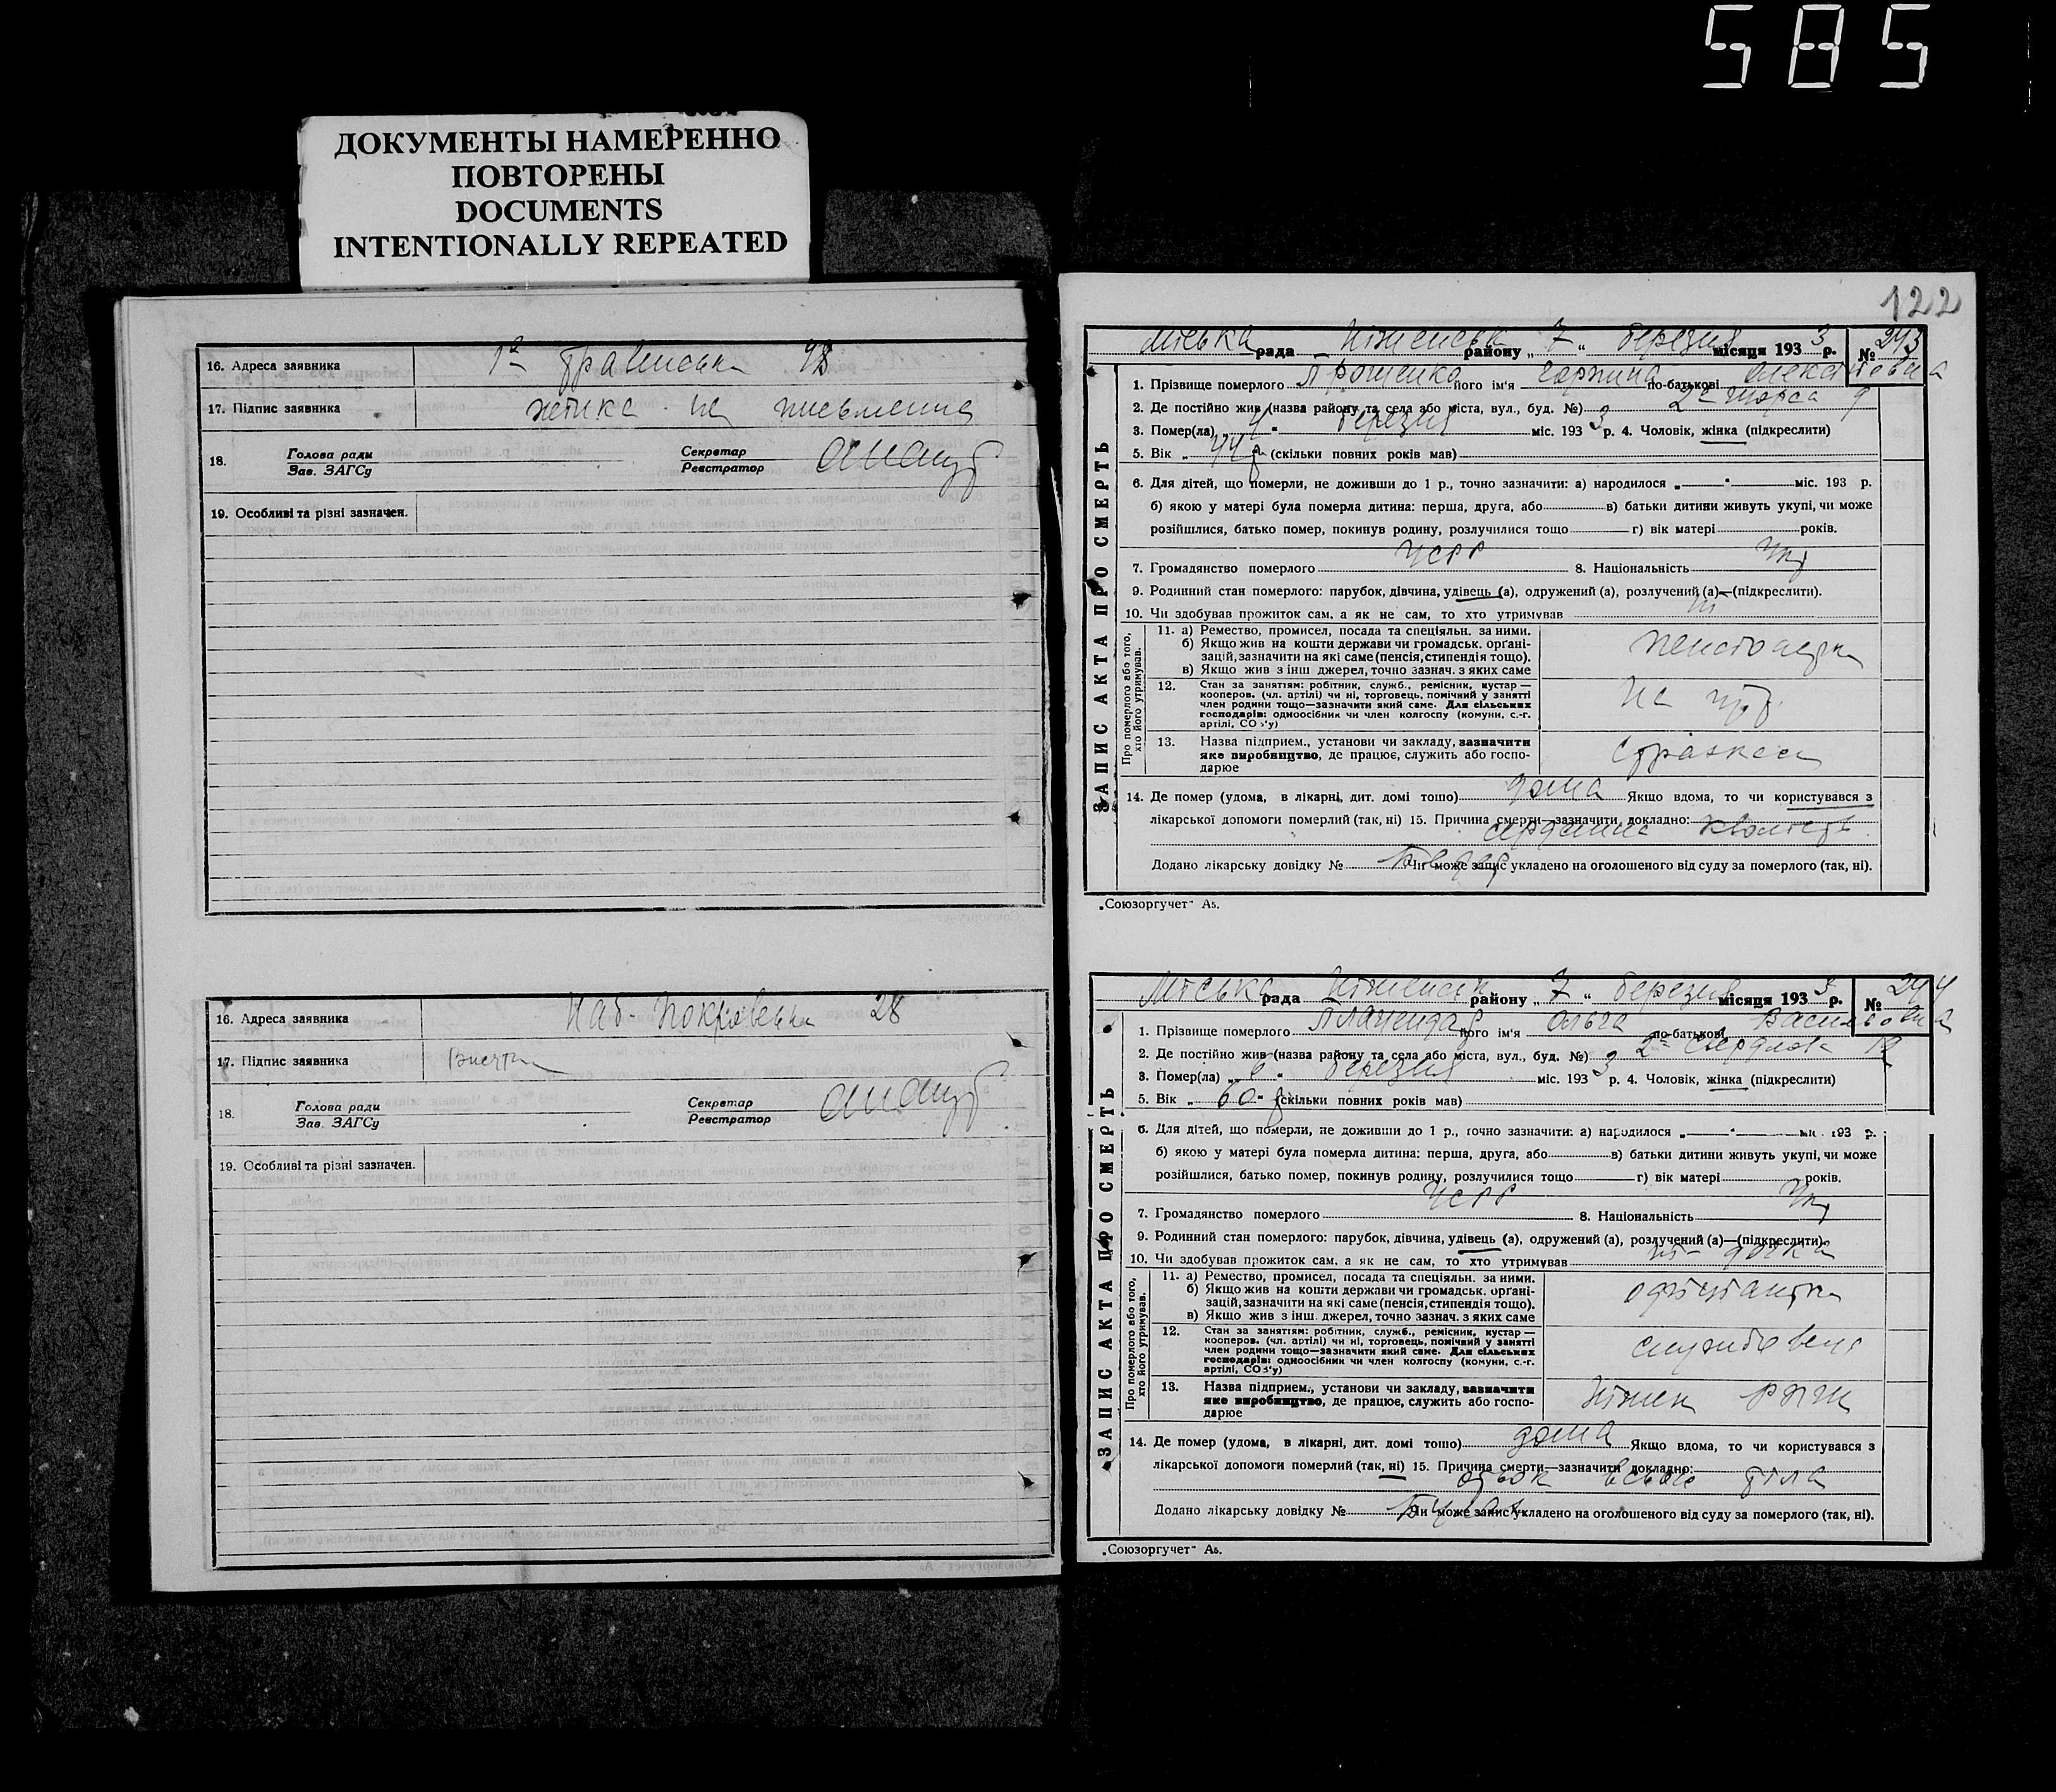 585
ДОКУМЕНТЫ НАМЕРЕННО
ПОВТОРЕНЫ
DOCUMENTS
INTENTIONALLY REPEATED
16. Адреса заявника
17. Підпис заявника
18. Голова ради Секретар
Зав. ЗАГСу Реєстратор
19. Особливі та різні зазначен.
16. Адреса заявника 28
17. Підпис заявника
18. Голова ради Секретар
Зав. ЗАГСу Реєстратор
19. Особливі та різні зазначен.
122
Міська рада Ніженськ району „ 7 “ березня місяця 193 3 р. № 243
1. Прізвище померлого його ім'я по-батькові
2. Де постійно жив (назва району та села або міста, вул., буд. №) 2а Щорса 9
3. Помер(ла) „ 4 “ березня міс. 193 3 р. 4. Чоловік, жінка (підкреслити)
5. Вік „ 44 (скільки повних років мав)
6. Для дітей, що померли, не доживши до 1 р., точно зазначити: а) народилося „ “ міс. 193 р.
б) якою у матері була померла дитина: перша, друга, або в) батьки дитини живуть укупі, чи може
розійшлися, батько помер, покинув родину, розлучилися тощо г) вік матері років.
7. Громадянство померлого УСРР 8. Національність Укр
9. Родинний стан померлого: парубок, дівчина, удівець (а), одружений (а), розлучений (а)—(підкреслити).
10. Чи здобував прожиток сам, а як не сам, то хто утримував
ЗАПИС АКТА ПРО СМЕРТЬ
Про померлого або того, хто його утримував.
11. а) Ремество, промисел, посада та спеціяльн. за ними.
б) Якщо жив на кошти держави чи громадськ. органі-
зацій, зазначити на які саме (пенсія, стипендія тощо).
в) Якщо жив з інш джерел, точно зазнач. з яких саме
12. Стан за заняттям: робітник, служб., ремісник, кустар—
кооперов. (чл. артілі) чи ні, торговець, помічний у занятті
член родини тощо—зазначити який саме. Для сільських
господарів: одноосібник чи член колгоспу (комуни, с.-г.
артілі, СОЗ'у)
13. Назва підприєм., установи чи закладу, зазначити
яке виробництво, де працює, служить або госпо-
дарює
14. Де помер (удома, в лікарні, дит. домі тощо) дома Якщо вдома, то чи користувався з
лікарської допомоги померлий (так, ні) 15. Причина смерти—зазначити докладно:
Додано лікарську довідку № Чи може запис укладено на оголошеного від суду за померлого (так, ні).
„Союзоргучет“ А5.
Міська рада Ніженськ району „ 7 “ березня місяця 193 3 р. № 244
1. Прізвище померлого його ім'я Ольга по-батькові Васильовна
2. Де постійно жив (назва району та села або міста, вул., буд. №)
3. Помер(ла) „ “ березня міс. 193 3 р. 4. Чоловік, жінка (підкреслити)
5. Вік „ 60 “ (скільки повних років мав)
6. Для дітей, що померли, не доживши до 1 р., точно зазначити: а) народилося „ “ міс. 193 р.
б) якою у матері була померла дитина: перша, друга, або в) батьки дитини живуть укупі, чи може
розійшлися, батько помер, покинув родину, розлучилися тощо г) вік матері років.
7. Громадянство померлого УСРР 8. Національність Укр
9. Родинний стан померлого: парубок, дівчина, удівець (а), одружений (а), розлучений (а)—(підкреслити).
10. Чи здобував прожиток сам, а як не сам, то хто утримував ні - дочка
ЗАПИС АКТА ПРО СМЕРТЬ
Про померлого або того, хто його утримував.
11. а) Ремество, промисел, посада та спеціяльн. за ними.
б) Якщо жив на кошти держави чи громадськ. органі-
зацій, зазначити на які саме (пенсія, стипендія тощо).
в) Якщо жив з інш. джерел, точно зазнач. з яких саме
офіціантка
12. Стан за заняттям: робітник, служб., ремісник, кустар—
кооперов. (чл. артілі) чи ні, торговець, помічний у занятті
член родини тощо—зазначити який саме. Для сільських
господарів: одноосібник чи член колгоспу (комуни, с.-г.
артілі, СОЗ'у)
13. Назва підприєм., установи чи закладу, зазначити
яке виробництво, де працює, служить або госпо-
дарює
14. Де помер (удома, в лікарні, дит. домі тощо) дома Якщо вдома, то чи користувався з
лікарської допомоги померлий (так, ні) 15. Причина смерти—зазначити докладно:
всього тіла
Додано лікарську довідку № Чи може запис укладено на оголошеного від суду за померлого (так, ні).
„Союзоргучет“ А5.